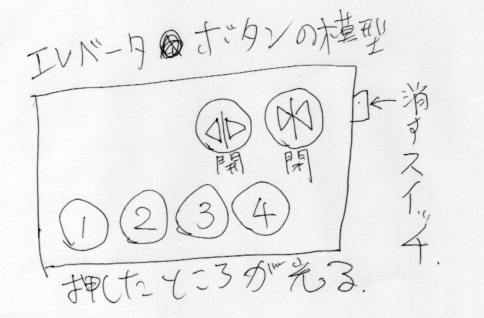 エレベータ ボタンの模型
開 閉
←消すスイッチ.
1 2 3 4
押したところが光る.